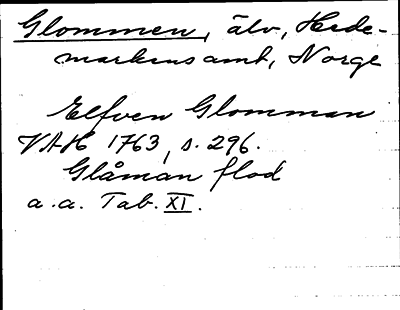 Glommen, älv, Hede-
markens amt, Norge
Elfven Glomman
VAH 1763, s. 296.
Glåman flod
a. a. Tab. XI.